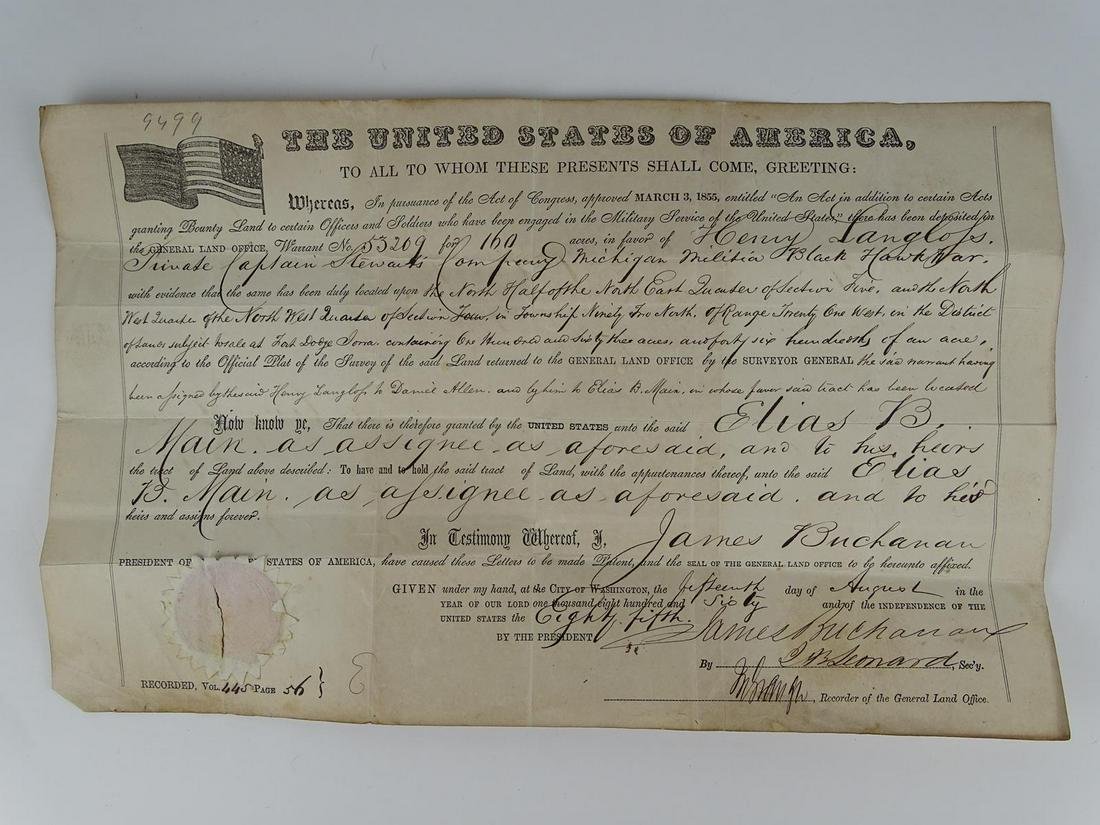 9499
THE UNITED STATES OF AMERICA,
TO ALL TO WHOM THESE PRESENTS SHALL COME, GREETING:
Whereas, In pursuance of the Act of Congress, approved MARCH 3, 1855, entitled "An Act in addition to certain Acts
granting Bounty Land to certain Officers and Soldiers who have been engaged in the Military Service of the United States," there has been deposited in
the GENERAL LAND OFFICE, Warrant No. 53209 for 160 acres, in favor of Henry Langloss.
Private Captain Stewart's Company Michigan Militia Black Hawk War.
with evidence that the same has been duly located upon the North Half of the North East Quarter of Section Five, and the North
West Quarter of the North West Quarter of Section Four, in Township Ninety Two North, of Range Twenty One West, in the District
of Lands subject to sale at Fort Dodge Iowa. containing One Hundred and sixty three acres, and forty six hundredths of an acre,
according to the Official Plat of the Survey of the said Land returned to the GENERAL LAND OFFICE by the SURVEYOR GENERAL the said warrant having
been assigned by the said Henry Langloss to Daniel Allen. and by him to Elias B. Main, in whose favor said tract has been located
Now know ye, That there is therefore granted by the UNITED STATES unto the said Elias B.
Main. as assignee as aforesaid, and to his heirs
the tract of Land above described: To have and to hold the said tract of Land, with the appurtenances thereof, unto the said Elias
B. Main. as assignee as aforesaid. and to his
heirs and assigns forever.
In Testimony Whereof, I, James Buchanan
PRESIDENT OF STATES OF AMERICA, have caused these Letters to be made Patent, and the SEAL OF THE GENERAL LAND OFFICE to be hereunto affixed.
GIVEN under my hand, at the CITY OF WASHINGTON, the fifteenth day of August in the
YEAR OF OUR LORD one thousand eight hundred and Sixty and of the INDEPENDENCE OF THE
UNITED STATES the Eighty fifth.
BY THE PRESIDENT James Buchanan
By J B Leonard, Sec'y.
RECORDED, VOL. 445 PAGE 56 } E
, Recorder of the General Land Office.